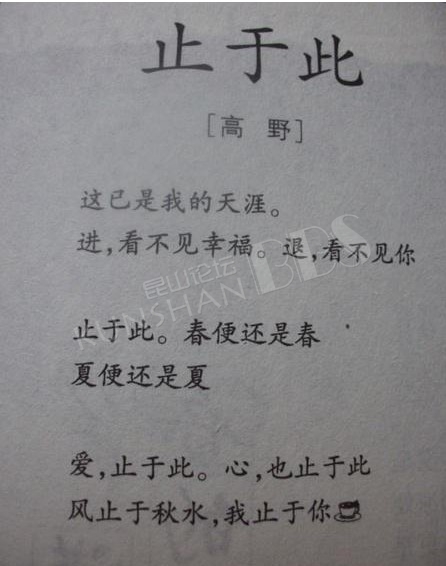 止于此
[高 野]
这已是我的天涯。
进,看不见幸福。退,看不见你
昆山论坛
KUNSHAN BBS
止于此。春便还是春
夏便还是夏
爱,止于此。心,也止于此
风止于秋水,我止于你